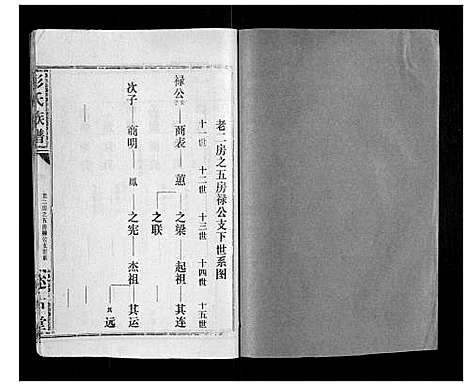 老二房之五房禄公支下世系图
十一世 十二世 十三世 十四世 十五世
禄公 商表 蕙 之梁 起祖 其连
之联
次子 商明 凤 之宪 杰祖 其运
其远
彭氏族谱
老二房之五房禄公支世系
堂